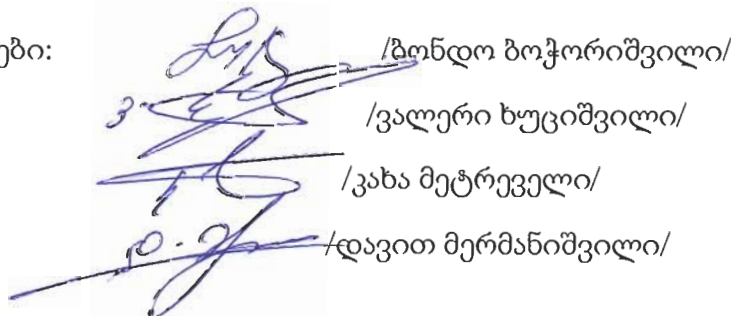 ები: /ბონდო ბოჭორიშვილი/
/ვალერი ხუციშვილი/
/კახა მეტრეველი/
/დავით მერმანიშვილი/